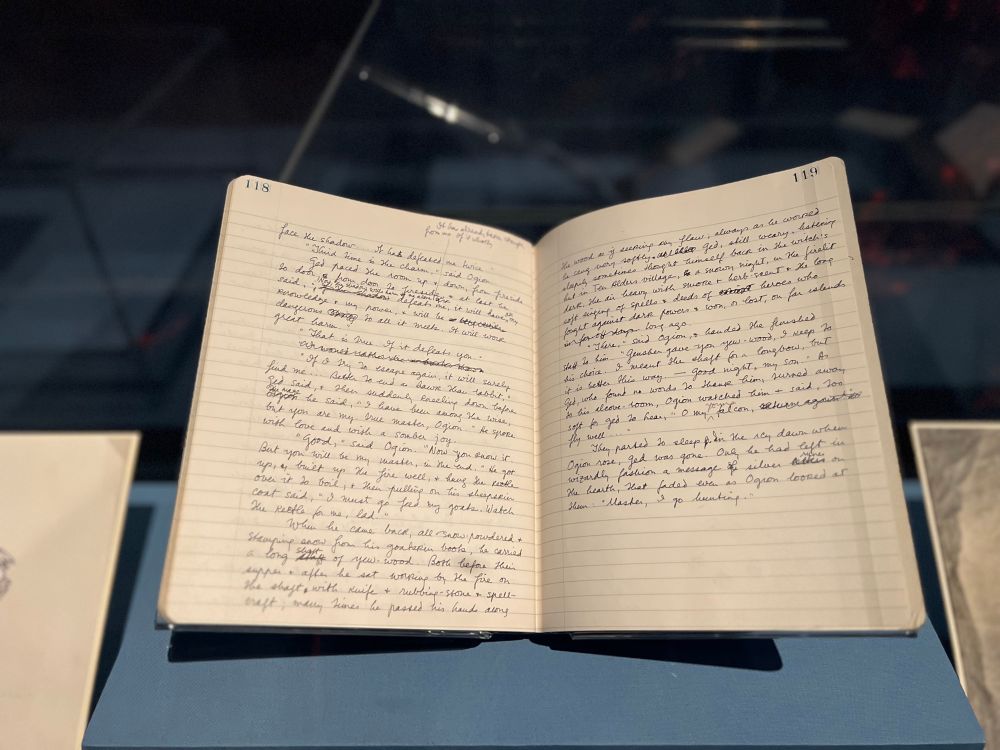 118
It has already been stronger
from me if I
face the shadow.... It has defeated me twice."
"Third time is the charm," said Ogion.
Ged paced the room up & down, from fireside
to door & from door to fireside & at last he
said, defeats me, it will have my
knowledge & my power, & will be
dangerous to all it meets. It will work
great harm."
"That is true. If it defeats you."
"If I try to escape again, it will surely
find me.... Better to find a hawk than rabbit,"
Ged said, & then suddenly kneeling down before
he said, "I have been among the wise,
but you are my true master, Ogion." He spoke
with love and with a somber joy.
"Good," said Ogion. "Now you know it.
But you will be my master, in the end." He got
up, & built up the fire well, & hung the kettle
over it to boil, & then pulling on his sheepskin
coat said, "I must go feed my goats. Watch
the kettle for me, lad."
When he came back, all snow-powdered &
stamping snow from his goatskin boots, he carried
a long shaft of yew-wood. Both before their
supper & after he sat working by the fire on
the shaft, with knife & rubbing-stone & spell-
craft; many times he passed his hands along
119
the wood as if seeking any flaw, always as he worked
he sang very softly. Ged, still weary, listening
sleepily sometimes thought himself back in the witch's
hut in Ten Alders village, a snowy night, in the firelit
dark, the air heavy with smoke & herb-scent & the long
soft singing of spells & deeds of heroes who
fought against dark powers & won, or lost, on far islands
long ago.
"There," said Ogion, & handed the finished
staff to him. "Gensher gave you yew-wood, I keep to
his choice. I meant the shaft for a longbow, but
it is better this way. — Good night, my son." As
Ged, who found no words to thank him, turned away
to his alcove-room, Ogion watched him & said, too
soft for Ged to hear, "O my young falcon,
fly well...."
They parted to sleep & in the icy dawn when
Ogion rose, Ged was gone. Only he had left in
wizardly fashion a message of silver runes on
the hearth, that faded even as Ogion looked at
them: "Master, I go hunting."